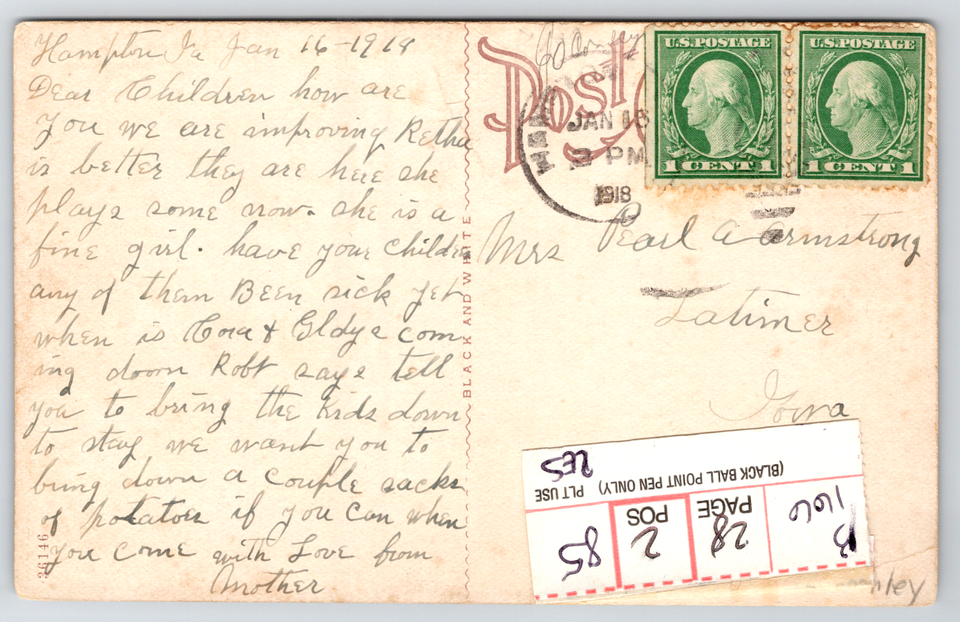 Hampton Ia Jan 16-1918
Dear Children how are
you we are improving Retha
is better they are here she
plays some now. she is a
fine girl. have your children
any of them Been sick yet
when is Cora & Gldys com
ing down Robt says tell
you to bring the kids down
to stay we want you to
bring down a couple sacks
of potatoes if you can when
you come with Love from
Mother
36146
BLACK AND WHITE
Post
JAN 16
2 PM
1918
U.S. POSTAGE
1 CENT 1
U.S. POSTAGE
1 CENT 1
Mrs Pearl A Armstrong
Latimer
Iowa
(BLACK BALL POINT PEN ONLY)
PLT USE
PAGE
28
POS
2
85